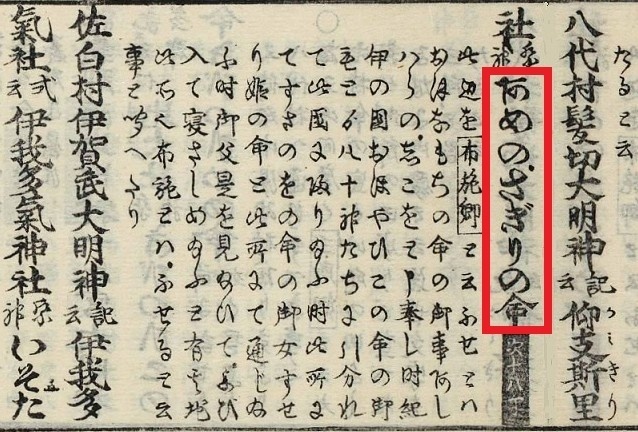 たると云
八代村髪切大明神記云仰支斯里
かミきり
社祭神あめのさぎりの命
此辺を布施郷と云ふせとハ
おほなもちの命の御事あし
ハらのしこをと申奉し時紀
伊の国おほやひこの命の御
もとより八十神たちに引分れ
て此国に皈り給ふ時此所に
てすさのをの命の御女すせ
り姫の命と此所にて通じ給
ふ時御父是を見給ひてよび
入て寝さしめ給ふと有其地
此所也布施とハふせると云
事と聞へたり
佐白村伊賀武大明神記云伊我多
氣社式云伊我多氣神社祭神いそた